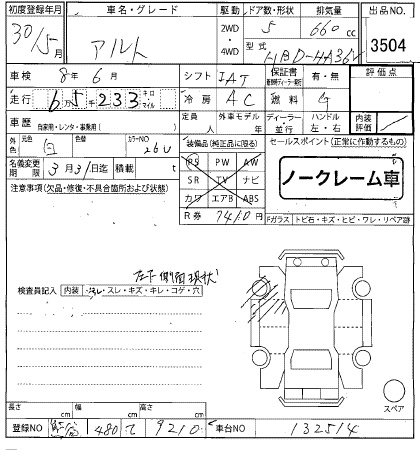 初度登録年月 車名・グレード 駆動 ドア数・形状 排気量 出品NO
30/5月 アルト 2WD ・ 4WD 5 660 cc 3504
型式 HBD-HA36V
車検 8年6月 シフト IAT 保証書 有・無 評価点
走行 6万5千233 キロ マイル 冷房 AC 燃料 G
車歴 自家用・レンタ・事業用( ) 定員 人 外車モデル 年 ディーラー・並行 ハンドル 左・右 内装評価
外色 元色 白 色替 カラーNO 26U 装備品(純正品に限る) セールスポイント(正常に作動するもの)
名義変更期限 3月31日迄 積載 t PS PW AW
SR TV ナビ
カワ エアB ABS
ノークレーム車
注意事項(欠品・修復・不具合箇所および状態) R券 7410円 Fガラス トビ石・キズ・ヒビ・ワレ・リペア跡
左下側面現状
検査員記入 内装 ヨゴレ・スレ・キズ・キレ・コゲ・穴
スペア
長さ cm 幅 cm 高さ cm
登録NO 480 て 9210 車台NO 132514